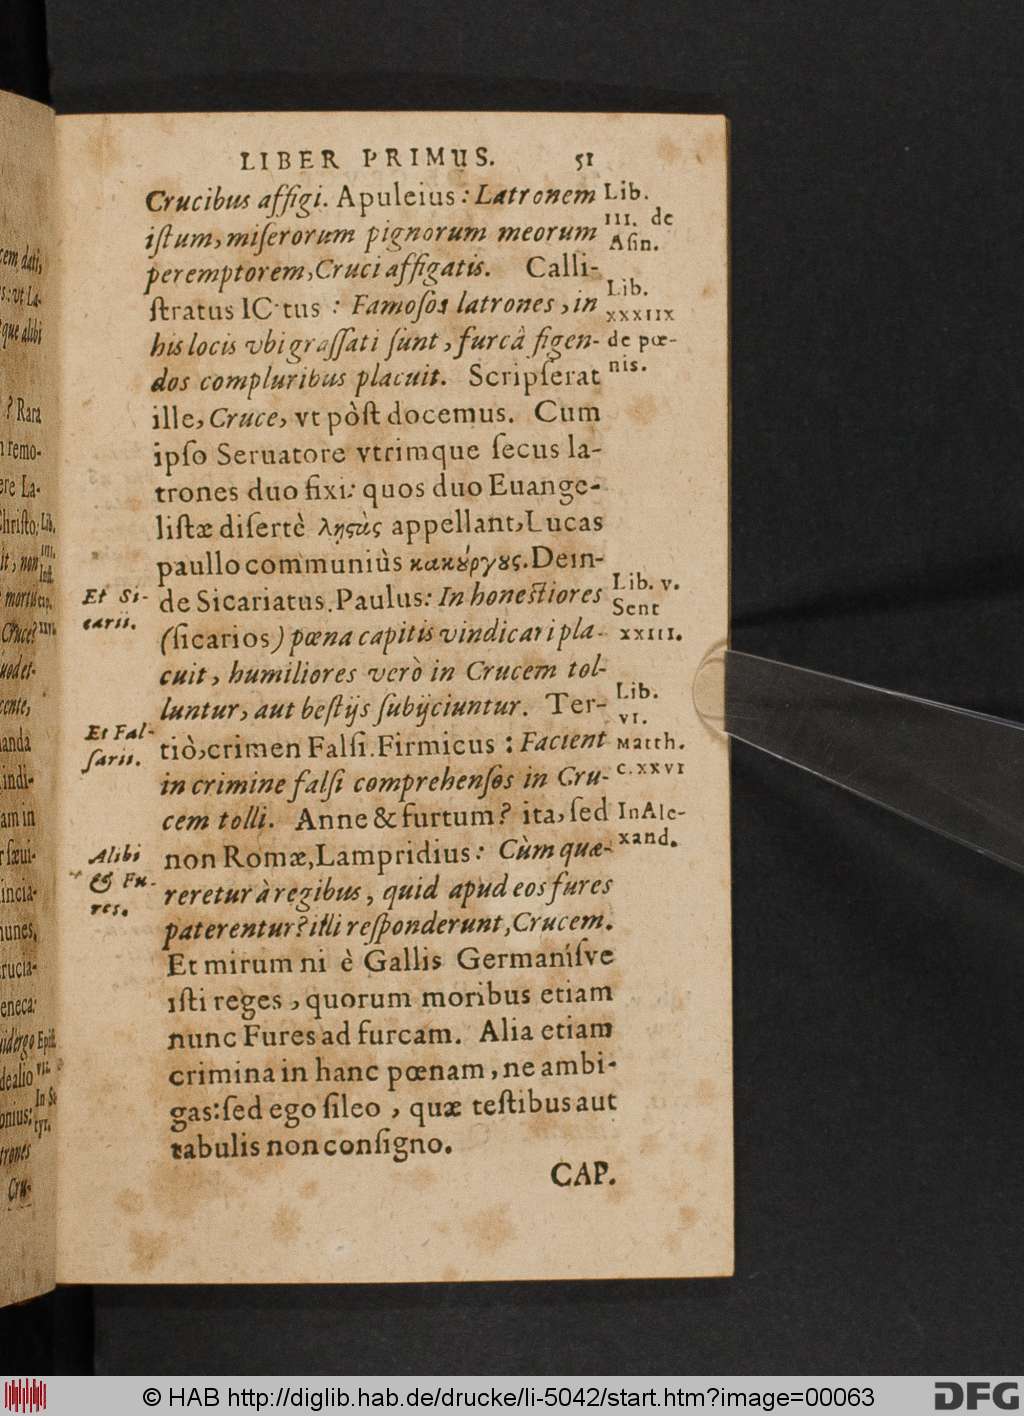 LIBER PRIMUS. 51
Crucibus affigi. Apuleius: Latronem
iſtum, miſerorum pignorum meorum
peremptorem, Cruci affigatis. Calli-
ſtratus IC·tus : Famoſos latrones, in
his locis vbi graſſati ſunt, furcâ figen-
dos compluribus placuit. Scripſerat
ille, Cruce, vt pòſt docemus. Cum
ipſo Seruatore vtrimque ſecus la-
trones duo fixi: quos duo Euange-
liſtæ diſertè λῃϛὰς appellant, Lucas
paullo communiùs κακȣ́ργȣς. Dein-
de Sicariatus. Paulus: In honeſtiores
(ſicarios) pœna capitis vindicari pla-
cuit, humiliores verò in Crucem tol-
luntur, aut beſtijs ſubijciuntur. Ter-
tiò, crimen Falſi. Firmicus : Facient
in crimine falſi comprehenſos in Cru-
cem tolli. Anne & furtum? ita, ſed
non Romæ, Lampridius: Cùm quæ-
reretur à regibus, quid apud eos fures
paterentur? illi reſponderunt, Crucem.
Et mirum ni è Gallis Germaníſve
iſti reges, quorum moribus etiam
nunc Fures ad furcam. Alia etiam
crimina in hanc pœnam, ne ambi-
gas: ſed ego ſileo, quæ teſtibus aut
tabulis non conſigno.
CAP.
Lib.
III. de
Aſin.
Lib.
XXXIIX
de pœ-
nis.
Lib. v.
Sent
XXIII.
Lib.
VI.
Matth.
c. XXVI
In Ale-
xand.
Et Si-
carii.
Et Fal-
ſarii.
Alibi
& Fu-
res.
© HAB http://diglib.hab.de/drucke/li-5042/start.htm?image=00063
DFG